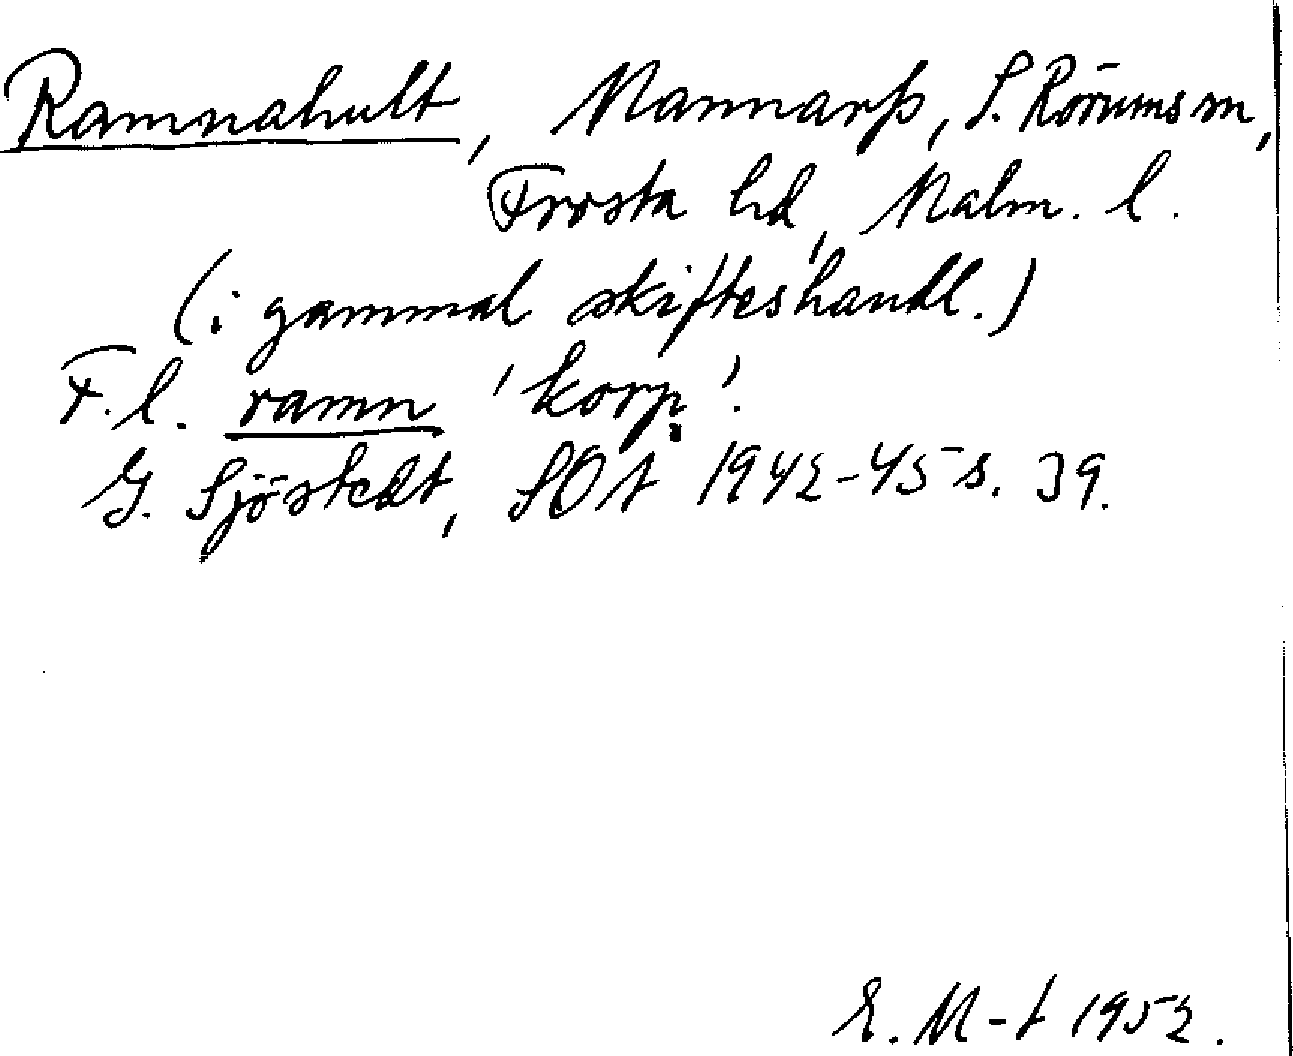 Ramnahult, Mannarp, S. Rörums sn,
Frosta hd, Malm. l.
(i gammal skifteshandl.)
F.l. ramn 'korp'.
G. Sjöstedt, SOÅ 1942-45 s. 39.
E. M-t 1952.